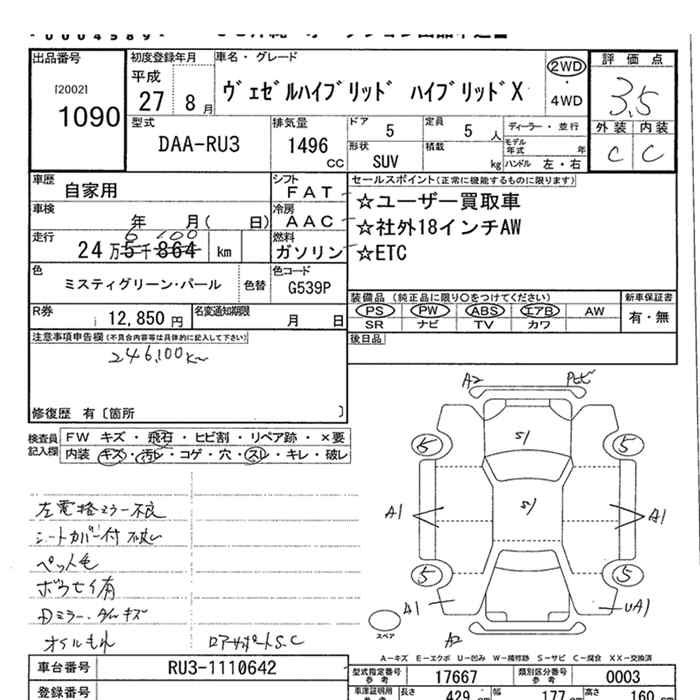 00004589
出品番号
[2002]
1090
初度登録年月
平成
27 8月
車名・グレード
ヴェゼルハイブリッド ハイブリッドX
2WD
・
4WD
評価点
3.5
外装 内装
C C
型式
DAA-RU3
排気量
1496
cc
ドア
5
定員
5 人
ディーラー・並行
形状
SUV
積載
kg
モデル年式 年
ハンドル 左・右
車歴
自家用
シフト
FAT
車検
年 月( 日)
冷房
AAC
走行
6 100
24万5千864 km
燃料
ガソリン
色
ミスティグリーン・パール
色替
色コード
G539P
R券
12,850円
名変通知期限
月 日
セールスポイント(正常に機能するものに限ります)
☆ユーザー買取車
☆社外18インチAW
☆ETC
装備品 (純正品に限り○をつけてください)
新車保証書
PS PW ABS エアB AW
有・無
SR ナビ TV カワ
後日品
注意事項申告欄(不具合内容等は具体的に記入して下さい)
246,100km
修復歴 有〔箇所 〕
検査員記入欄
FW キズ・飛石・ヒビ割・リペア跡・×要
内装 キズ・汚レ・コゲ・穴・スレ・キレ・破レ
左電格ミラー不良
シートカバー付
ペット毛
有
キズ
オイルもれ
S.C
A2
S/
5
5
A1
S/
A1
5
5
A1
UA1
スペア
A2
A-キズ E-エクボ U-凹み W-補修跡 S-サビ C-腐食 XX-交換済
車台番号
RU3-1110642
型式指定番号
参考
17667
類別区分番号
参考
0003
登録番号
車庫証明用
参考
長さ
429 cm
幅
177 cm
高さ
160 cm